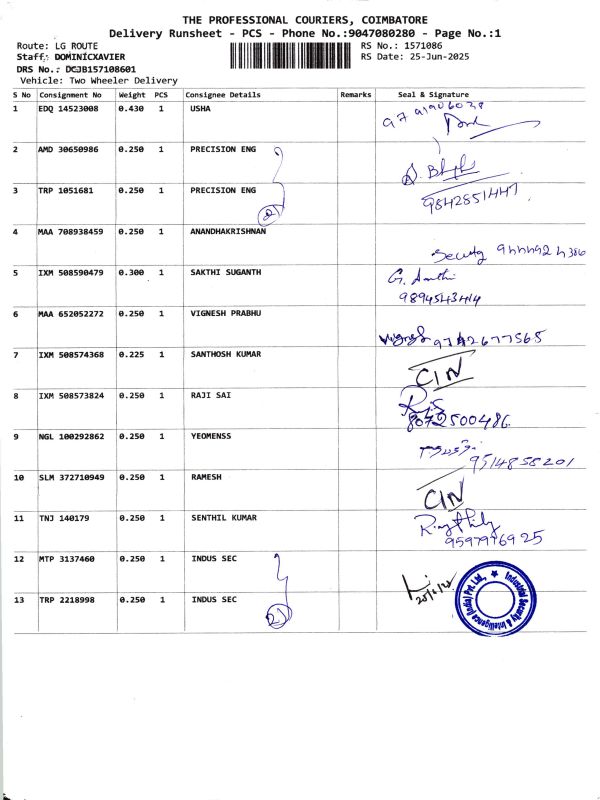 THE PROFESSIONAL COURIERS, COIMBATORE
Delivery Runsheet - PCS - Phone No.:9047080280 - Page No.:1
Route: LG ROUTE RS No.: 1571086
Staff: DOMINICXAVIER RS Date: 25-Jun-2025
DRS No.: DCJB157108601
Vehicle: Two Wheeler Delivery
S No Consignment No Weight PCS Consignee Details Remarks Seal & Signature
1 EDQ 14523008 0.430 1 USHA
2 AMD 30650986 0.250 1 PRECISION ENG
3 TRP 1051681 0.250 1 PRECISION ENG
2 9842851447
4 MAA 708938459 0.250 1 ANANDHAKRISHNAN
Security
5 IXM 508590479 0.300 1 SAKTHI SUGANTH
9894543414
6 MAA 652052272 0.250 1 VIGNESH PRABHU
9742677565
7 IXM 508574368 0.225 1 SANTHOSH KUMAR
CIN
8 IXM 508573824 0.250 1 RAJI SAI
8072500486
9 NGL 100292862 0.250 1 YEOMENSS
9514858201
10 SLM 372710949 0.250 1 RAMESH
CIN
11 TNJ 140179 0.250 1 SENTHIL KUMAR
9597976925
12 MTP 3137460 0.250 1 INDUS SEC
Industrial Security & Intelligence (India) Pvt. Ltd.,
13 TRP 2218998 0.250 1 INDUS SEC
2